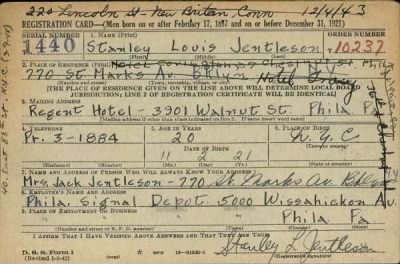 220 Lincoln St - New Britain, Conn 12/4/43
REGISTRATION CARD—(Men born on or after February 17, 1897 and on or before December 31, 1921)
SERIAL NUMBER 1. NAME (Print) ORDER NUMBER
1440 Stanley Louis Jentleson 10237
2. PLACE OF RESIDENCE (Print)
770 St. Marks Av. Bklyn
(THE PLACE OF RESIDENCE GIVEN ON THE LINE ABOVE WILL DETERMINE LOCAL BOARD
JURISDICTION; LINE 2 OF REGISTRATION CERTIFICATE WILL BE IDENTICAL)
3. MAILING ADDRESS
Regent Hotel - 3901 Walnut St. Phila Pa
4. TELEPHONE 5. AGE IN YEARS 6. PLACE OF BIRTH
Pr. 3-1884 20 N.Y.C.
DATE OF BIRTH
11 2 21
7. NAME AND ADDRESS OF PERSON WHO WILL ALWAYS KNOW YOUR ADDRESS
Mrs. Jack Jentleson - 770 St. Marks Av Bklyn
8. EMPLOYER'S NAME AND ADDRESS
Phila. Signal Depot 5000 Wissahickon Av.
9. PLACE OF EMPLOYMENT OR BUSINESS
Phila Pa
I AFFIRM THAT I HAVE VERIFIED ABOVE ANSWERS AND THAT THEY ARE TRUE.
D. S. S. Form 1
Stanley L. Jentleson